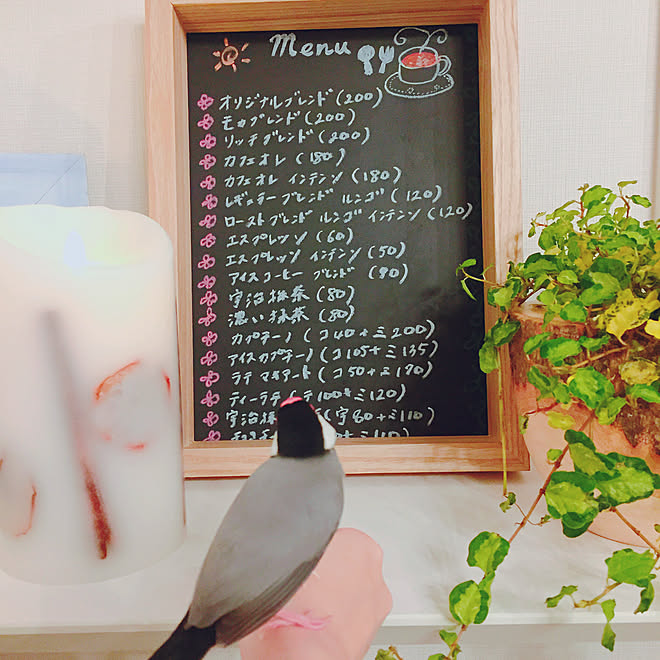 Menu
オリジナルブレンド (200)
モカブレンド (200)
リッチブレンド (200)
カフェオレ (180)
カフェオレ インテンソ (180)
レギュラーブレンド ルンゴ (120)
ローストブレンド ルンゴ インテンソ (120)
エスプレッソ (60)
エスプレッソ インテンソ (50)
アイスコーヒー ブレンド (90)
宇治抹茶 (80)
濃い抹茶 (80)
カプチーノ (コ40+ミ200)
アイスカプチーノ (コ105+ミ135)
ラテ マキアート (コ50+ミ170)
ティーラテ (テ100+ミ120)
宇治抹 (宇80+ミ110)
+ミ110)